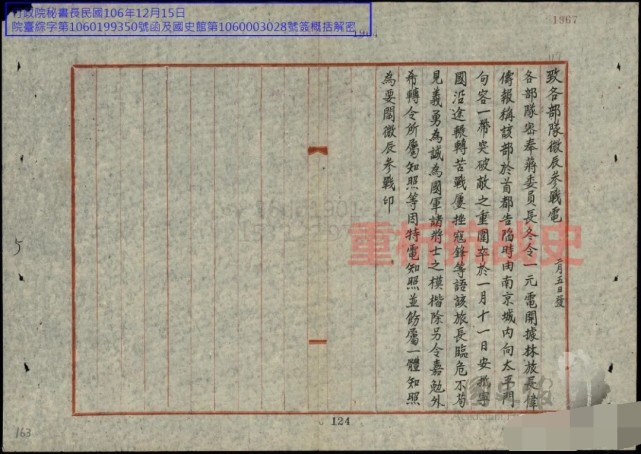 行政院秘書長民國106年12月15日
院臺綜字第1060199350號函及國史館第1060003028號簽概括解密
1967
致各部隊徵辰參戰電 月五日發
各部隊密奉蔣委員長冬令一元電開據林旅長偉
儔報稱該部於首都告陷時由南京城內向太平門
句容一帶突破敵之重圍卒於一月十一日安抵寧
國沿途輾轉苦戰屢挫寇鋒等語該旅長臨危不茍
見義勇為誠為國軍諸將士之模楷除另令嘉勉外
希轉令所屬知照等因特電知照並飭屬一體知照
為要閻徵辰參戰印
重析抗戰史
124
163